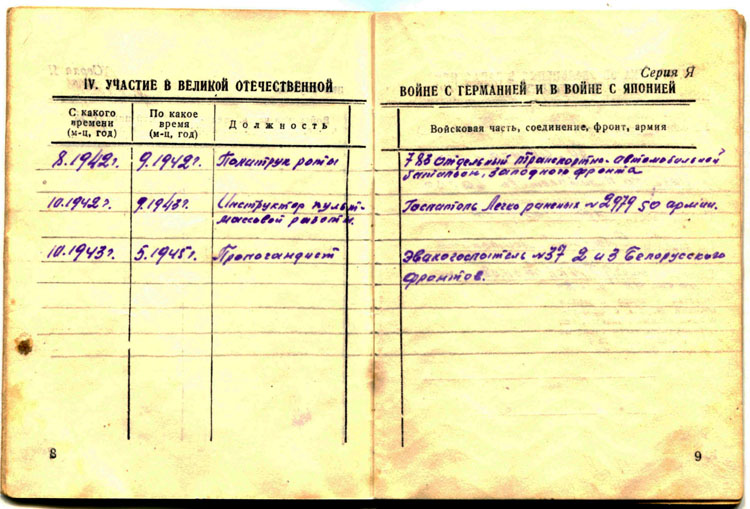 IV. УЧАСТИЕ В ВЕЛИКОЙ ОТЕЧЕСТВЕННОЙ
С какого
времени
(м-ц, год)
По какое
время
(м-ц, год)
Должность
8.1942г.
9.1942г.
Политрук роты
10.1942г.
9.1943г.
Инструктор культ-
массовой работы.
10.1943г.
5.1945г.
Пропогандист
8
Серия Я
ВОЙНЕ С ГЕРМАНИЕЙ И В ВОЙНЕ С ЯПОНИЕЙ
Войсковая часть, соединение, фронт, армия
783 отдельный транспортно-автомобильной
батальон, западного фронта
Госпиталь Легко раненых №2979 50 армии.
Эвакогоспиталь №37 2 и 3 Белорусского
фронтов.
9